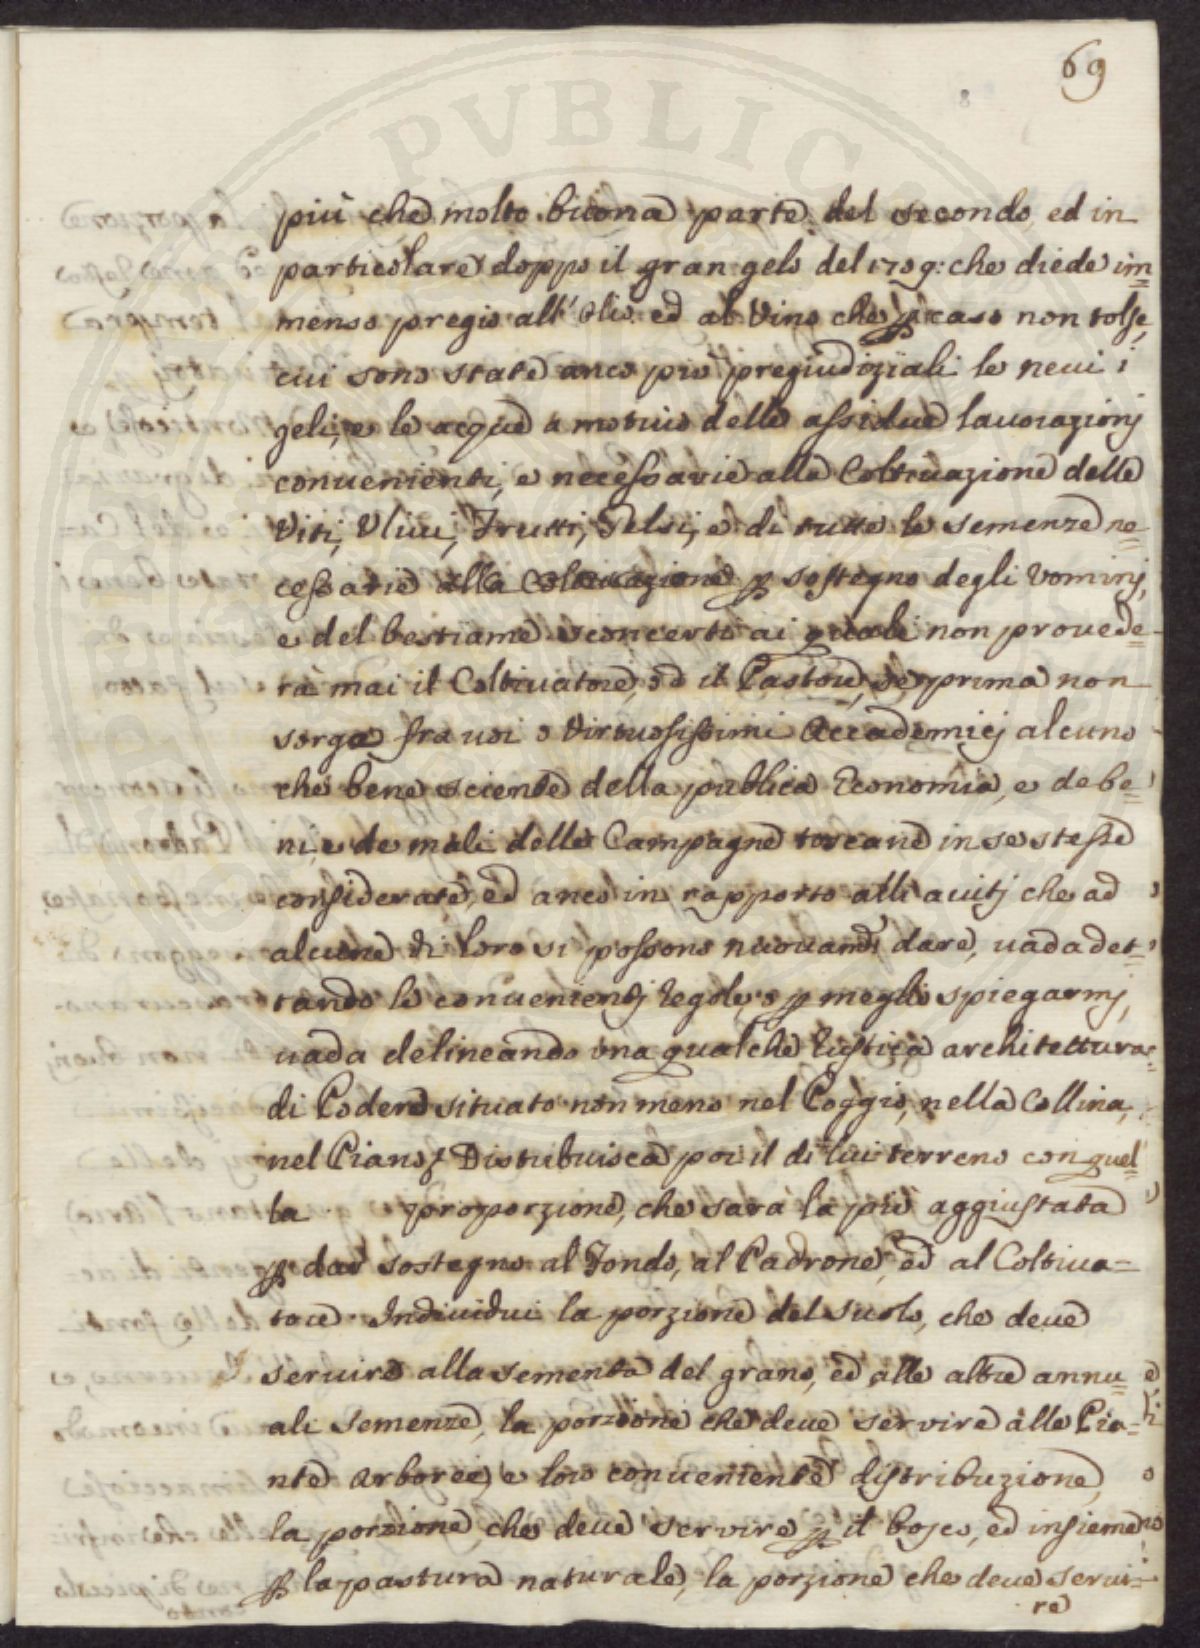 69
8
più che molto buona parte del secondo, ed in
particolare doppo il gran gelo del 1709: che diede im=
menso pregio all'Olio ed al Vino che p caso non tolse,
cui sono state anco più pregiudiziali le neui i
geli, e le acque a motiuo delle assidue lauorazionj
conuenienti, e necessarie alla Coltiuazione delle
Viti, Vliui, Frutti, Gelsi, e di tutte le semenze ne=
cessarie alla Coltiuazione p sostegno degli Vominj,
e del bestiame sconcerto ai quali non prouede=
rà mai il Coltiuatore, ed il Pastore, se prima non
sorga fra uoi o Virtuosissimi Accademicj alcuno
che bene sciente della publica Economia, e de be=
ni, e de mali delle Campagne toscane in se stesse
considerate, ed anco in rapporto alli aiutj che ad
alcune di loro si possono nuouamte dare, uada det=
tando le conuenientj regole, o p meglio spiegarmj,
uada delineando vna qualche rustica architettura
di Podere situato non meno nel Poggio, nella Collina,
nel Piano; Distribuisca poi il di lui terreno con quel=
la proporzione, che sarà la più aggiustata
p dar sostegno al Fondo, al Padrone, ed al Coltiua=
tore. Indiuidui la porzione del suolo, che deue
seruire alla sementa del grano, ed alle altre annu=
ali semenze, la porzione che deue servire alle Pia=
nte arboree, e loro conueniente distribuzione,
la porzione che deue servire p il bosco, ed insieme
p la pastura naturale, la porzione che deue serui=
re
PVBLICA